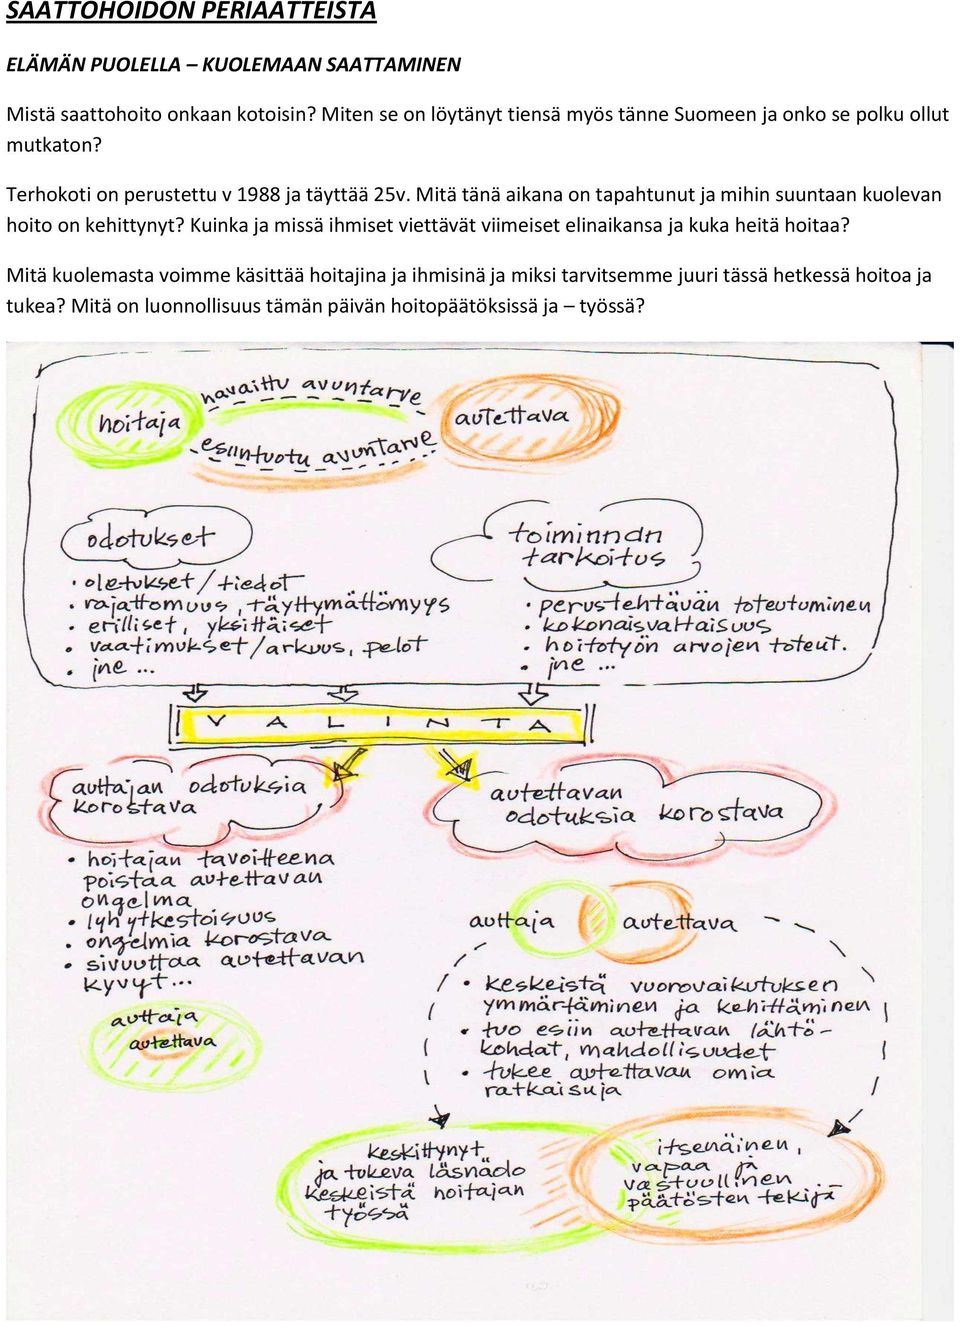 SAATTOHOIDON PERIAATTEISTA
ELÄMÄN PUOLELLA – KUOLEMAAN SAATTAMINEN
Mistä saattohoito onkaan kotoisin? Miten se on löytänyt tiensä myös tänne Suomeen ja onko se polku ollut
mutkaton?
Terhokoti on perustettu v 1988 ja täyttää 25v. Mitä tänä aikana on tapahtunut ja mihin suuntaan kuolevan
hoito on kehittynyt? Kuinka ja missä ihmiset viettävät viimeiset elinaikansa ja kuka heitä hoitaa?
Mitä kuolemasta voimme käsittää hoitajina ja ihmisinä ja miksi tarvitsemme juuri tässä hetkessä hoitoa ja
tukea? Mitä on luonnollisuus tämän päivän hoitopäätöksissä ja – työssä?
hoitaja
havaittu avuntarve
esiintuotu avuntarve
autettava
odotukset
• oletukset / tiedot
• rajattomuus, täyttymättömyys
• erilliset, yksittäiset
• vaatimukset / arkuus, pelot
• jne ...
toiminnan
tarkoitus
• perustehtävän toteutuminen
• kokonaisvaltaisuus
• hoitotyön arvojen toteut.
• jne ...
VALINTA
auttajan odotuksia
korostava
• hoitajan tavoitteena
poistaa autettavan
ongelma
• lyhytkestoisuus
• ongelmia korostava
• sivuuttaa autettavan
kyvyt...
auttaja
autettava
autettavan
odotuksia korostava
auttaja autettava
• keskeistä vuorovaikutuksen
ymmärtäminen ja kehittäminen
• tuo esiin autettavan lähtö-
kohdat, mahdollisuudet
• tukee autettavan omia
ratkaisuja
keskittynyt
ja tukeva läsnäolo
keskeistä hoitajan
työssä
itsenäinen,
vapaa ja
vastuullinen
päätösten tekijä